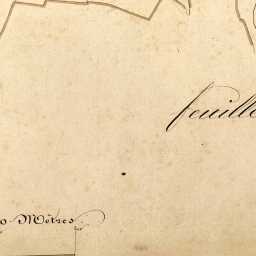 feuille
0 Mètres